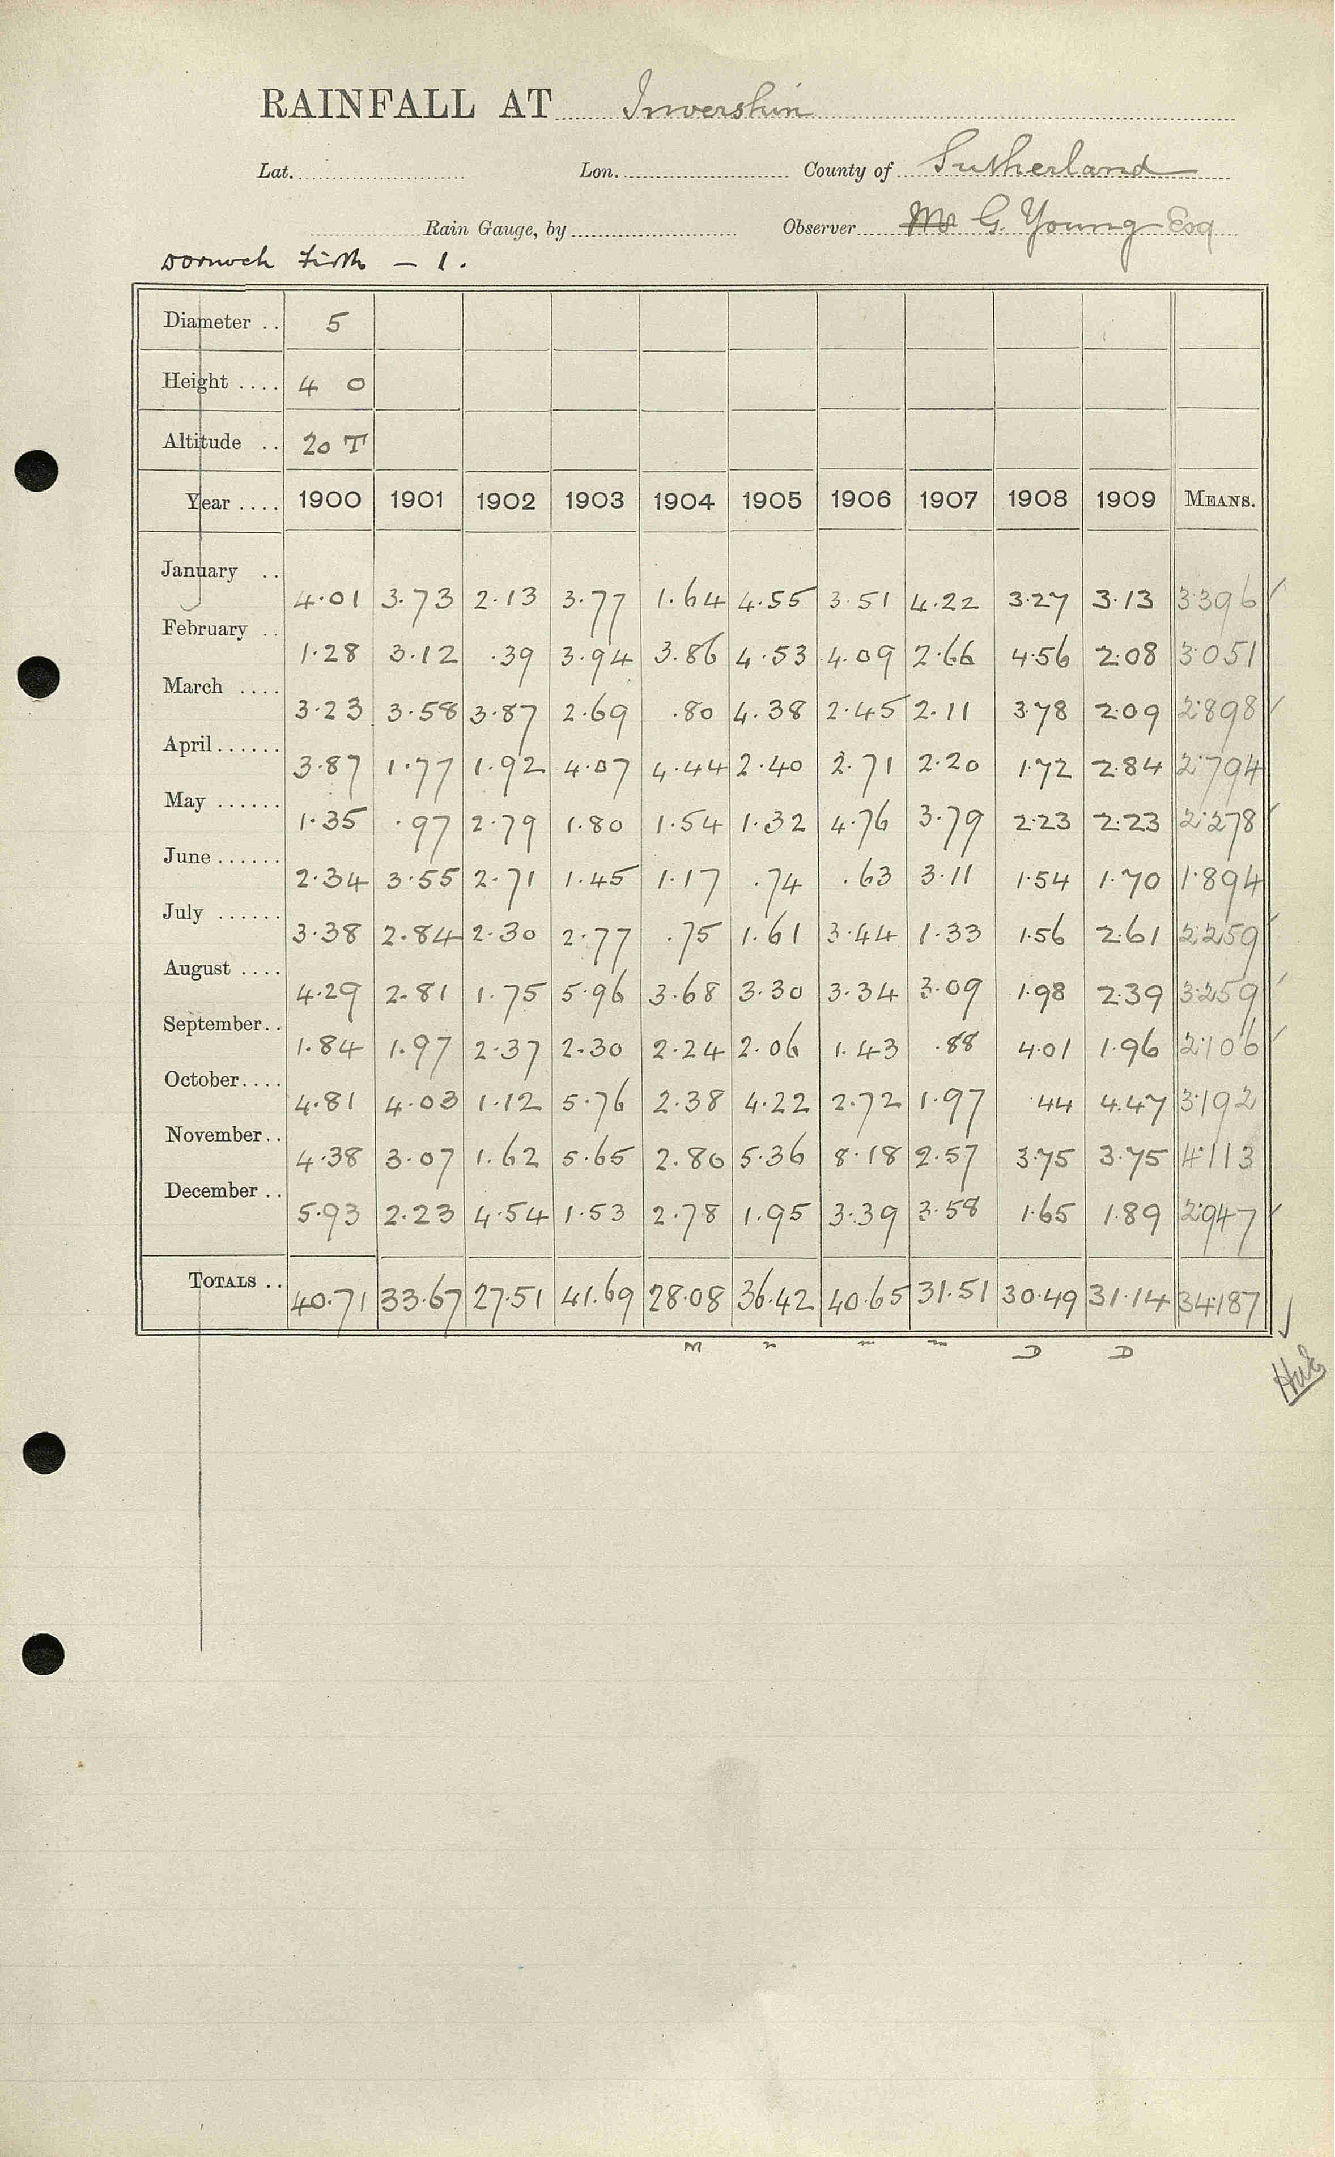 RAINFALL AT Invershin
Lat. Lon. County of Sutherland
Rain Gauge, by Observer Mr G. Young Esq
Dornoch Firth — 1.
Diameter .. 5
Height .... 4 0
Altitude .. 20 T
Year .... 1900 1901 1902 1903 1904 1905 1906 1907 1908 1909 MEANS.
January .. 4.01 3.73 2.13 3.77 1.64 4.55 3.51 4.22 3.27 3.13 3.396 ✓
February .. 1.28 3.12 .39 3.94 3.86 4.53 4.09 2.66 4.56 2.08 3.051
March .... 3.23 3.58 3.87 2.69 .80 4.38 2.45 2.11 3.78 2.09 2.898 ✓
April ...... 3.87 1.77 1.92 4.07 4.44 2.40 2.71 2.20 1.72 2.84 2.794
May ...... 1.35 .97 2.79 1.80 1.54 1.32 4.76 3.79 2.23 2.23 2.278 ✓
June ...... 2.34 3.55 2.71 1.45 1.17 .74 .63 3.11 1.54 1.70 1.894
July ...... 3.38 2.84 2.30 2.77 .75 1.61 3.44 1.33 1.56 2.61 2.259 ✓
August .... 4.29 2.81 1.75 5.96 3.68 3.30 3.34 3.09 1.98 2.39 3.259 ✓
September.. 1.84 1.97 2.37 2.30 2.24 2.06 1.43 .88 4.01 1.96 2.106 ✓
October.... 4.81 4.03 1.12 5.76 2.38 4.22 2.72 1.97 .44 4.47 3.192
November.. 4.38 3.07 1.62 5.65 2.80 5.36 8.18 2.57 3.75 3.75 4.113
December .. 5.93 2.23 4.54 1.53 2.78 1.95 3.39 3.58 1.65 1.89 2.947 ✓
TOTALS .. 40.71 33.67 27.51 41.69 28.08 36.42 40.65 31.51 30.49 31.14 34.187 ✓
M " " " D D